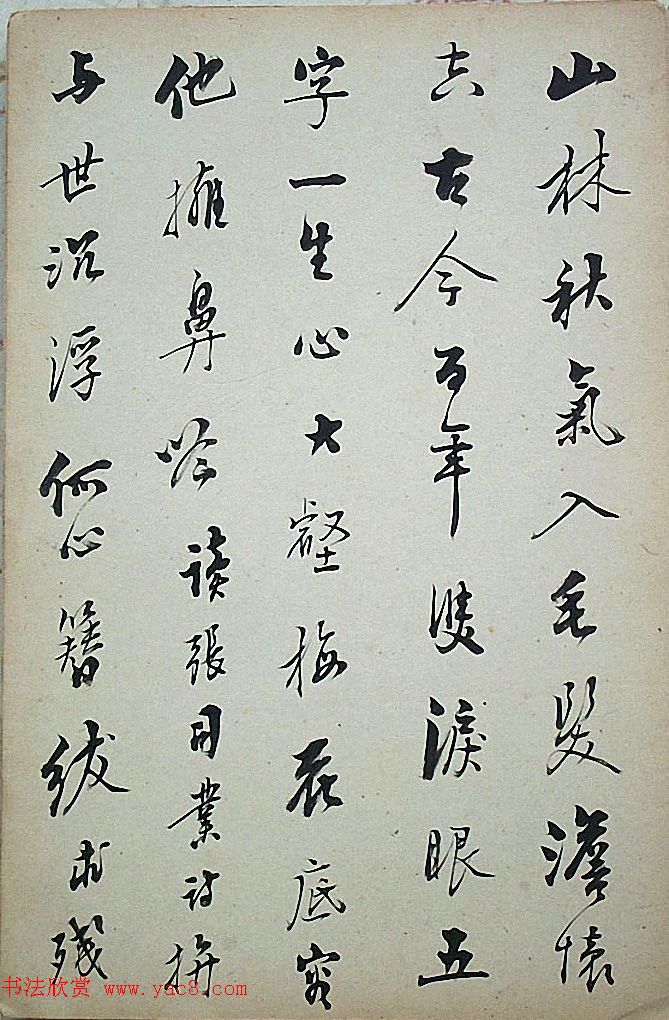 山林秋氣入毛髮澹懷
古今百年雙淚眼五
字一生心大壑梅花底容
他擁鼻吟讀張司業詩拚
与世沉浮何心簪紱求殘
书法欣赏 www.yac8.com